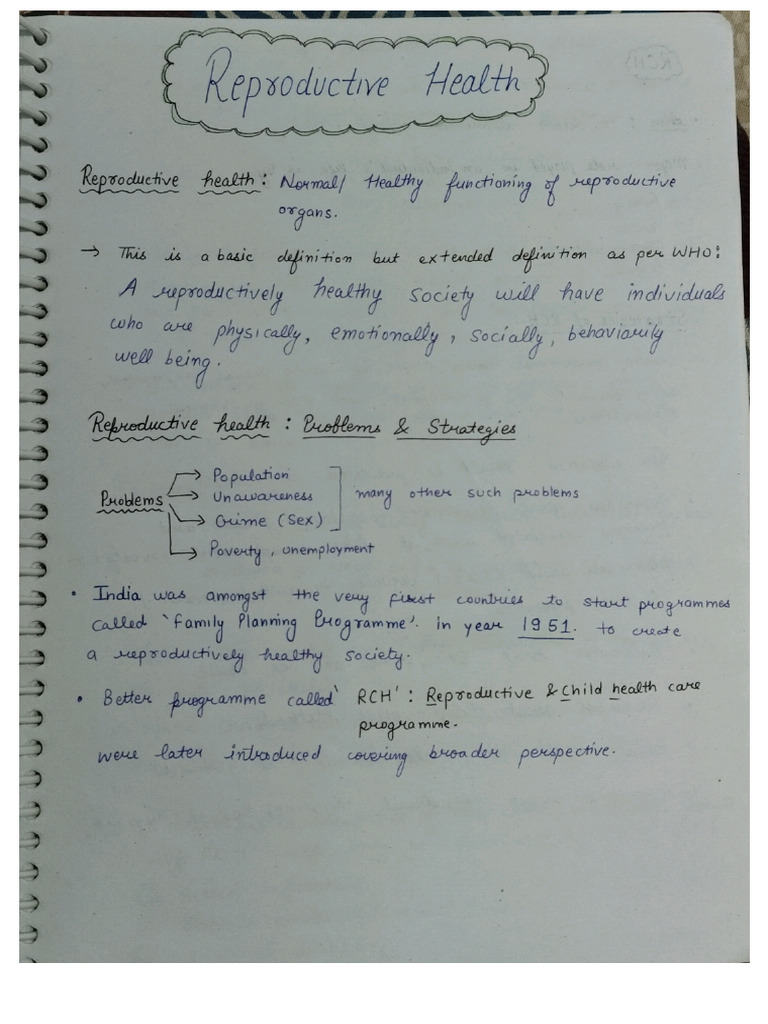 Reproductive Health
Reproductive health: Normal/ Healthy functioning of reproductive
organs.
→ This is a basic definition but extended definition as per WHO:
A reproductively healthy society will have individuals
who are physically, emotionally, socially, behaviorily
well being.
Reproductive health : Problems & Strategies
Problems
→ Population
→ Unawareness
→ Crime (Sex)
many other such problems
→ Poverty, unemployment
• India was amongst the very first countries to start programmes
called 'Family Planning Programme'. in year 1951. to create
a reproductively healthy society.
• Better programme called' RCH' : Reproductive & Child health care
programme.
were later introduced covering broader perspective.